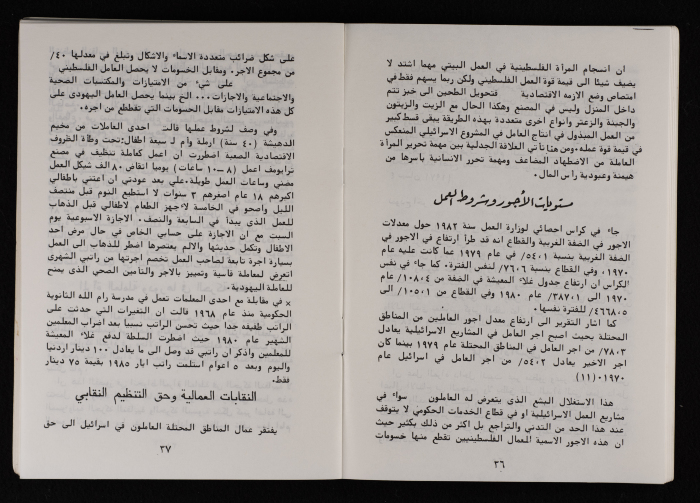 ان انسجام المرأة الفلسطينية في العمل البيتي مهما اشتد لا
يضيف شيئا الى قيمة قوة العمل الفلسطيني ولكن ربما يسهم فقط في
امتصاص وضع الازمه الاقتصادية فتحويل الطحين الى خبز تتم
داخل المنزل وليس في المصنع وهكذا الحال مع الزيت والزيتون
والجبنة والزعتر وانواع اخرى متعددة بهذه الطريقة يبقى قسط كبير
من العمل المبذول في انتاج العامل في المشروع الاسرائيلي المنعكس
في قيمة قوة عمله، ومن هنا تأتي العلاقة الجدلية بين مهمة تحرير المرأة
العاملة من الاضطهاد المضاعف ومهمة تحرر الانسانية باسرها من
هيمنة وعبودية رأس المال.
مستويات الأجور وشروط العمل
جاء في كراس احصائي لوزارة العمل سنة ١٩٨٢ حول معدلات
الاجور في الضفة الغربية والقطاع انه قد طرأ ارتفاع في الاجور في
الضفة الغربية بنسبة ٥٤٠١/ في عام ١٩٧٩ عما كانت عليه عام
١٩٧٠، وفي القطاع بنسبة ٧٦٠٦/ لنفس الفترة. كما جاء في نفس
الكراس ان ارتفاع جدول غلاء المعيشة في الضفة من ١٠٨٠٤/ عام
١٩٧٠ الى ٣٨٧٠١/ عام ١٩٨٠ وفي القطاع من ١٠٥٠١/ الى
٤٦٦٨٠٥/ للفترة نفسها.
كما اشار التقرير الى ارتفاع معدل اجور العاملين من المناطق
المحتلة بحيث اصبح اجر العامل في المشاريع الاسرائيلية يعادل
٧٨٠٣/ من اجر العامل في المناطق المحتلة عام ١٩٧٩ بينما كان
اجر الاخير يعادل ٥٤٠٢/ من اجر العامل في اسرائيل عام
١٩٧٠ (١١)
هذا الاستغلال البشع الذي يتعرض له العاملون سواء في
مشاريع العمل الاسرائيلية او في قطاع الخدمات الحكومي لا يتوقف
عند هذا الحد من التدني والتراجع بل اكثر من ذلك بكثير حيث
ان هذه الاجور الاسمية للعمال الفلسطينيين تقطع منها خسومات
٣٦
على شكل ضرائب متعددة الاسماء والاشكال وتبلغ في معدلها ٤٠/
من مجموع الاجر. ومقابل الخسومات لا يحصل العامل الفلسطيني
على شيء من الامتيازات والمكتسبات الصحية
والاجتماعية والاجازات... الخ بينما يحصل العامل اليهودى على
كل هذه الامتيازات مقابل الخسومات التي تقطع من اجره.
وفي وصف لشروط عملها قالت احدى العاملات من مخيم
الدهيشة (٤٠ سنة) ارملة وأم لـ سبعة اطفال: تحت وطأة الظروف
الاقتصادية الصعبة اضطررت ان اعمل كعاملة تنظيف في مصنع
ترابومف اعمل (٨ــ١٠ ساعات) يوميا اتقاضى ٨٠ الف شيكل العمل
مضني وساعات العمل طويلة. علي بعد عودتي ان اعتني باطفالي
اكبرهم ١٨ عام اصغرهم ٣ سنوات لا استطيع النوم قبل منتصف
الليل واصحو في الخامسة لاجهز الطعام لاطفالي قبل الذهاب
للعمل الذي يبدأ في السابعة والنصف. الاجازة الاسبوعية يوم
السبت مع ان الاجازة على حسابي الخاص في حال مرض احد
الاطفال وتكمل حديثها والالم يعتصرها اضطر للذهاب الى العمل
بسيارة اجرة تابعة لصاحب العمل تخصم اجرتها من راتبي الشهرى
اتعرض لمعاملة قاسية وتمييز بالاجر والتأمين الصحي الذى يمنح
للعاملة اليهودية.
× في مقابلة مع احدى المعلمات تعمل في مدرسة رام الله الثانوية
الحكومية منذ عام ١٩٦٨ قالت ان التغيرات التي حدثت على
الراتب طفيفه جدا حيث تحسن الراتب نسبيا بعد اضراب المعلمين
الشهير عام ١٩٨٠ حيث اضطرت السلطة لدفع غلاء المعيشة
للمعلمين واذكر ان راتبي قد وصل الى ما يعادل ١٠٠ دينار اردنيا
واليوم وبعد ٥ اعوام استلمت راتب ايار ١٩٨٥ بقيمة ٧٥ دينار
فقط.
النقابات العمالية وحق التنظيم النقابي
يفتقر عمال المناطق المحتلة العاملون في اسرائيل الى حق
٣٧